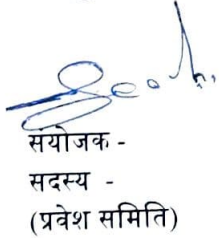 सयोजक -
सदस्य -
(प्रवेश समिति)